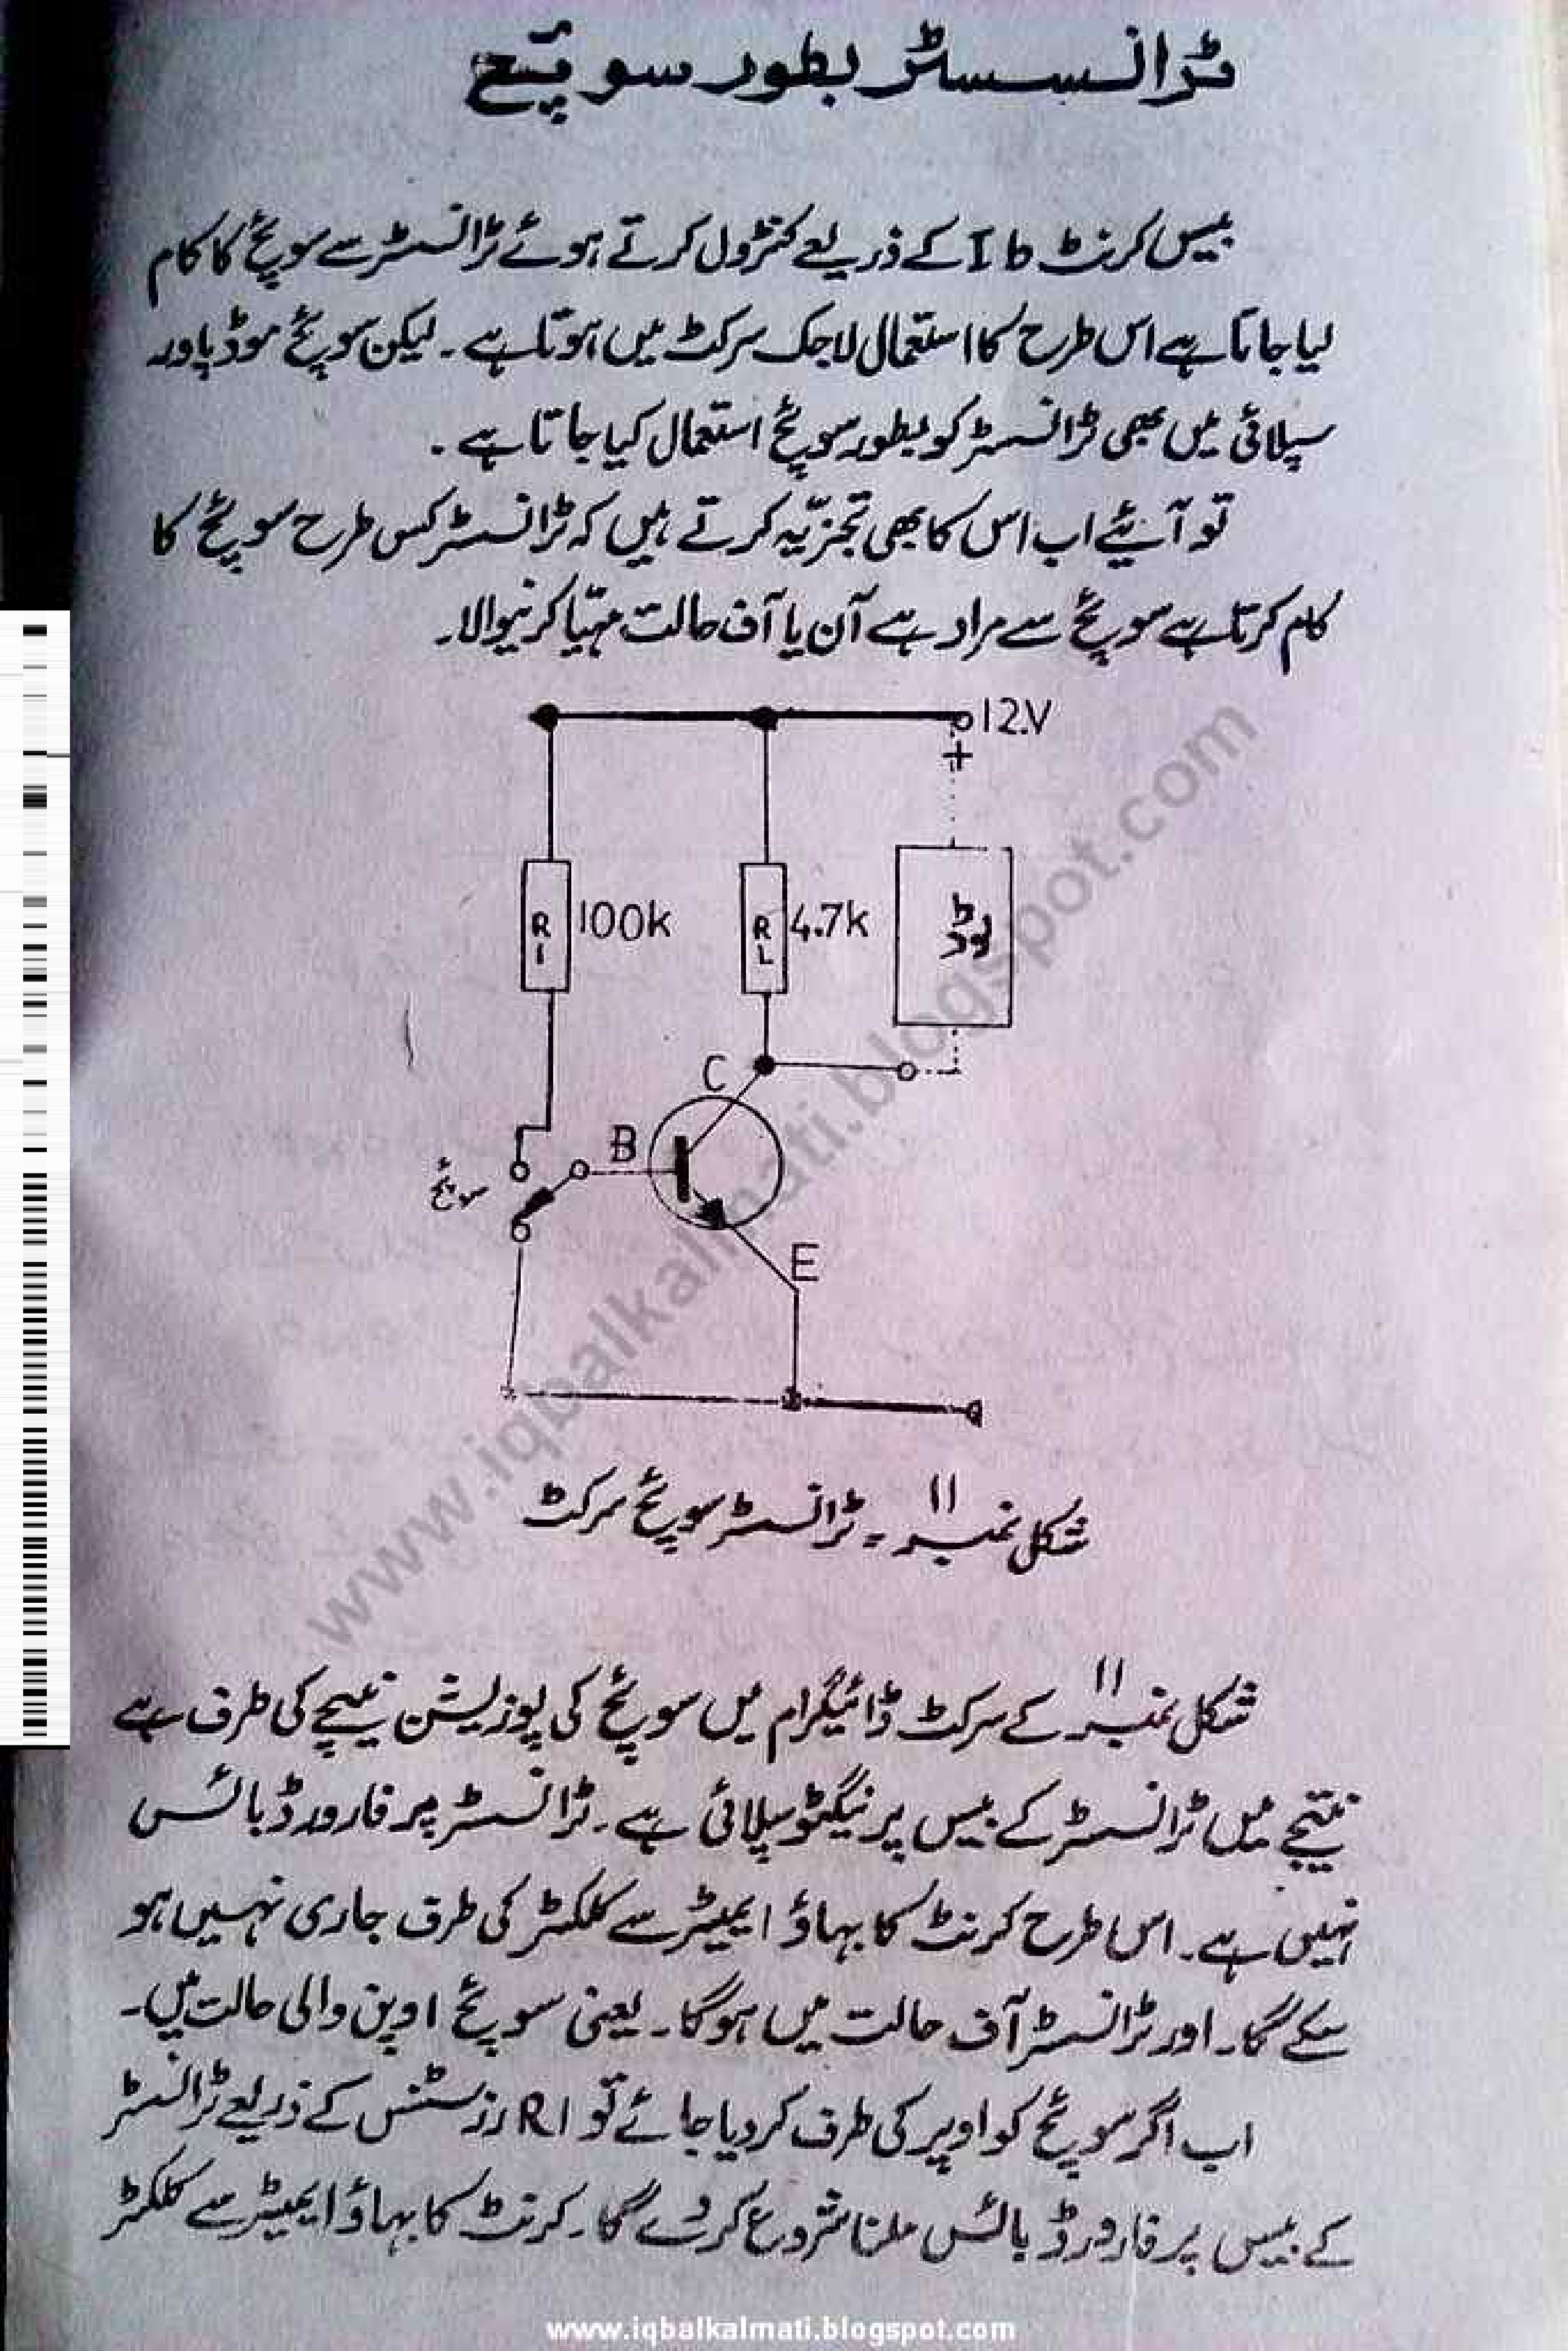 ٹرانسسٹر بطور سوئچ
بیس کرنٹ Ib کے ذریعے کنٹرول کرتے ہوئے ٹرانسسٹر سے سوئچ کا کام
لیا جاتا ہے اس طرح کا استعمال لاجک سرکٹ میں ہوتا ہے ۔ لیکن سوئچ موڈ پاور
سپلائی میں بھی ٹرانسسٹر کو بطور سوئچ استعمال کیا جاتا ہے ۔
تو آیئے اب اس کا بھی تجزیّہ کرتے ہیں کہ ٹرانسسٹر کس طرح سوئچ کا
کام کرتا ہے سوئچ سے مراد ہے آن یا آف حالت مہیّا کرنیوالا۔
12.V
+
R1 100k
RL 4.7k
لوڈ
C
B
سوئچ
E
شکل نمبر 11 ۔ ٹرانسسٹر سوئچ سرکٹ
شکل نمبر 11 کے سرکٹ ڈائیگرام میں سوئچ کی پوزیشن نیچے کی طرف ہے
نتیجے میں ٹرانسسٹر کے بیس پر نیگٹو سپلائی ہے ۔ ٹرانسسٹر پر فارورڈ بائس
نہیں ہے ۔ اس طرح کرنٹ کا بہاؤ ایمیٹر سے کلکٹر کی طرف جاری نہیں ہو
سکے گا ۔ اور ٹرانسسٹر آف حالت میں ہوگا ۔ یعنی سوئچ اوپن والی حالت میں ۔
اب اگر سوئچ کو اوپر کی طرف کر دیا جائے تو R1 رزسٹنس کے ذریعے ٹرانسسٹر
کے بیس پر فارورڈ بائس ملنا شروع کر دے گا ۔ کرنٹ کا بہاؤ ایمیٹر سے کلکٹر
www.iqbalkalmati.blogspot.com
www.iqbalkalmati.blogspot.com